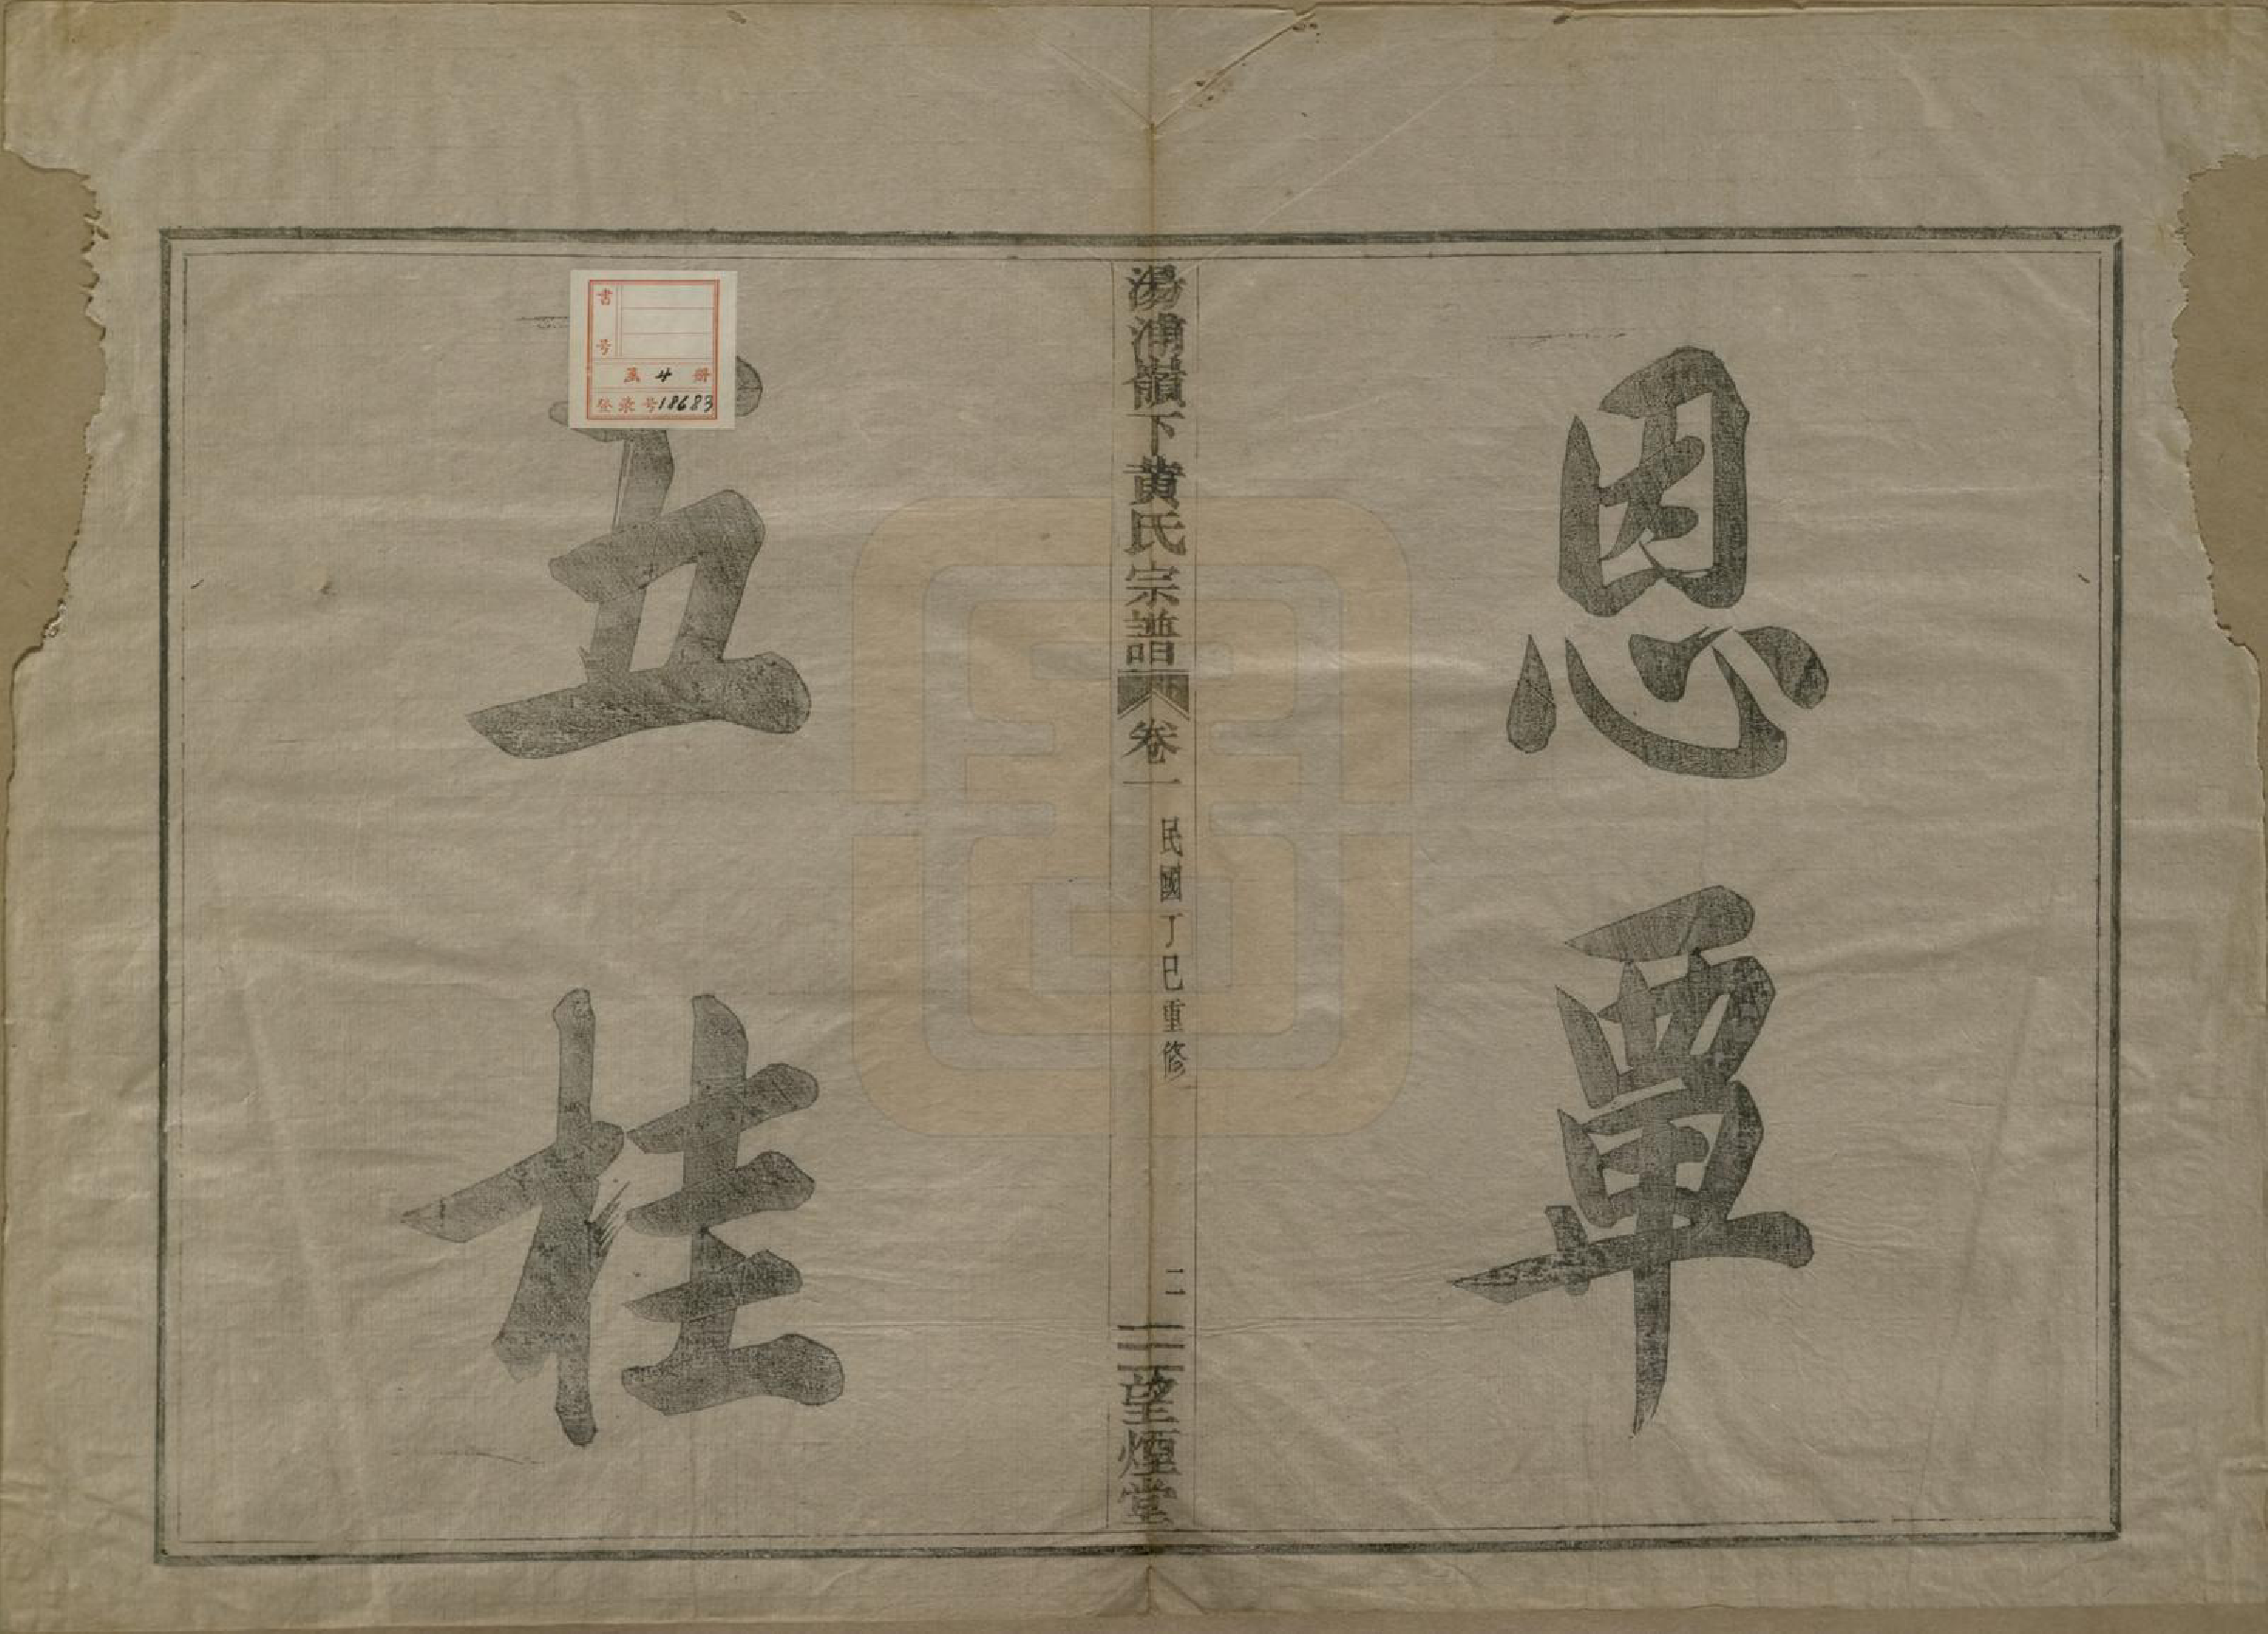 恩覃
湯浦嶺下黄氏宗譜
卷一
民國丁巳重修
二
三望煙堂
五桂
書号
函 4 册
登录号18683